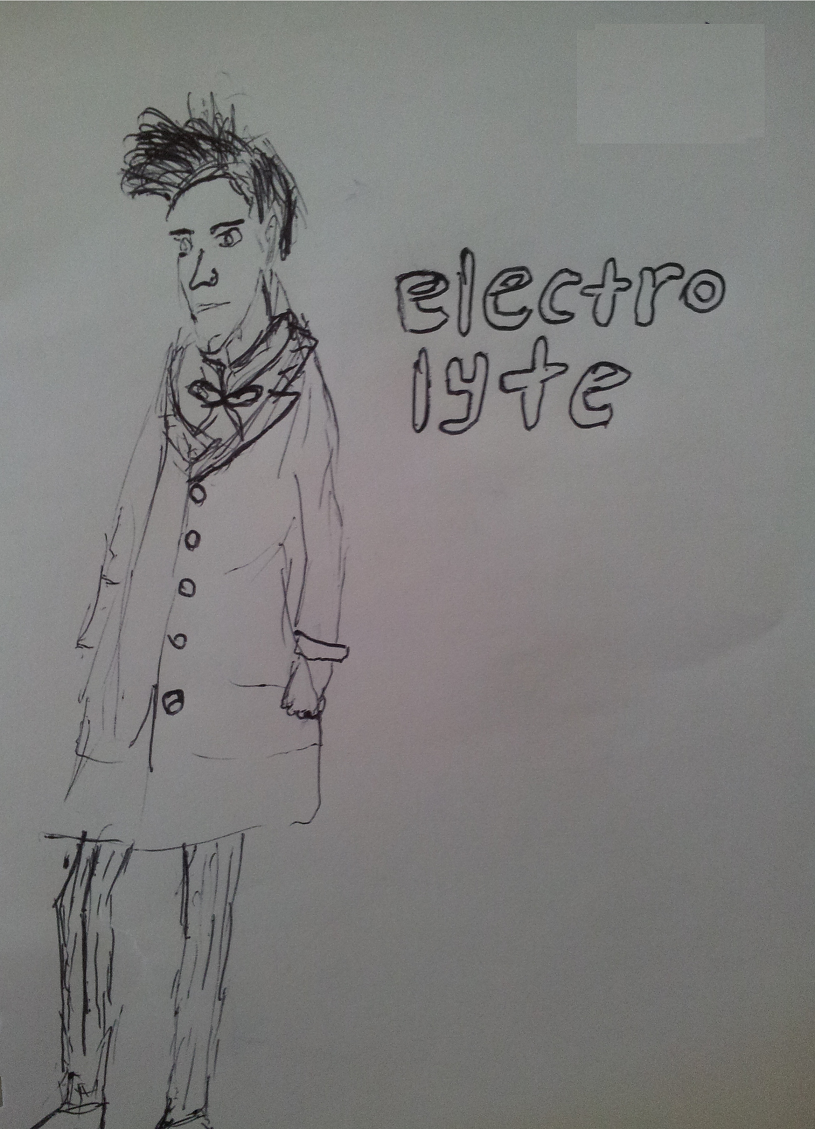 electro
lyte